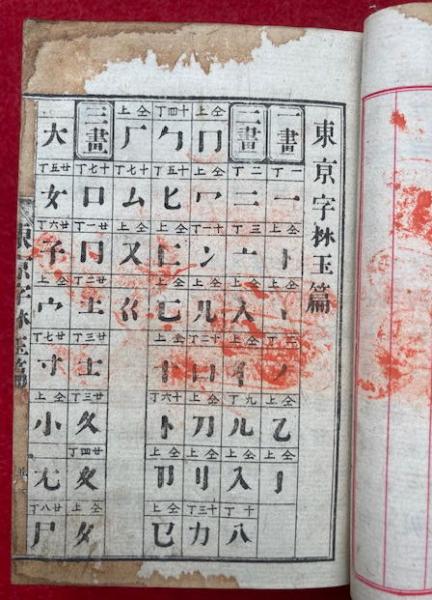 東亰字林玉篇
一畫 一丁 一 仝上 丨 仝上 二丁 ノ 仝上 乙 仝上 亅
二畫 二丁 二 三丁 亠 仝上 人 亻 九丁 儿 仝上 入 十丁 八
仝上 冂 仝上 冖 十一丁 冫 仝上 几 十二丁 凵 仝上 刀 仝上 刂 十三丁 力
十四丁 勹 十五丁 匕 仝上 匚 仝上 匸 十 十六丁 卜 仝上 卩 仝上 㔾
仝上 厂 十七丁 厶 仝上 又 巜
三畫 十七丁 口 廿一丁 囗 廿二丁 土 廿三丁 士 廿三丁 夂 廿四丁 夊 仝上 夕
大 廿五丁 女 廿六丁 子 仝上 宀 廿七丁 寸 仝上 小 仝上 尢 廿八丁 尸
東亰字林玉篇